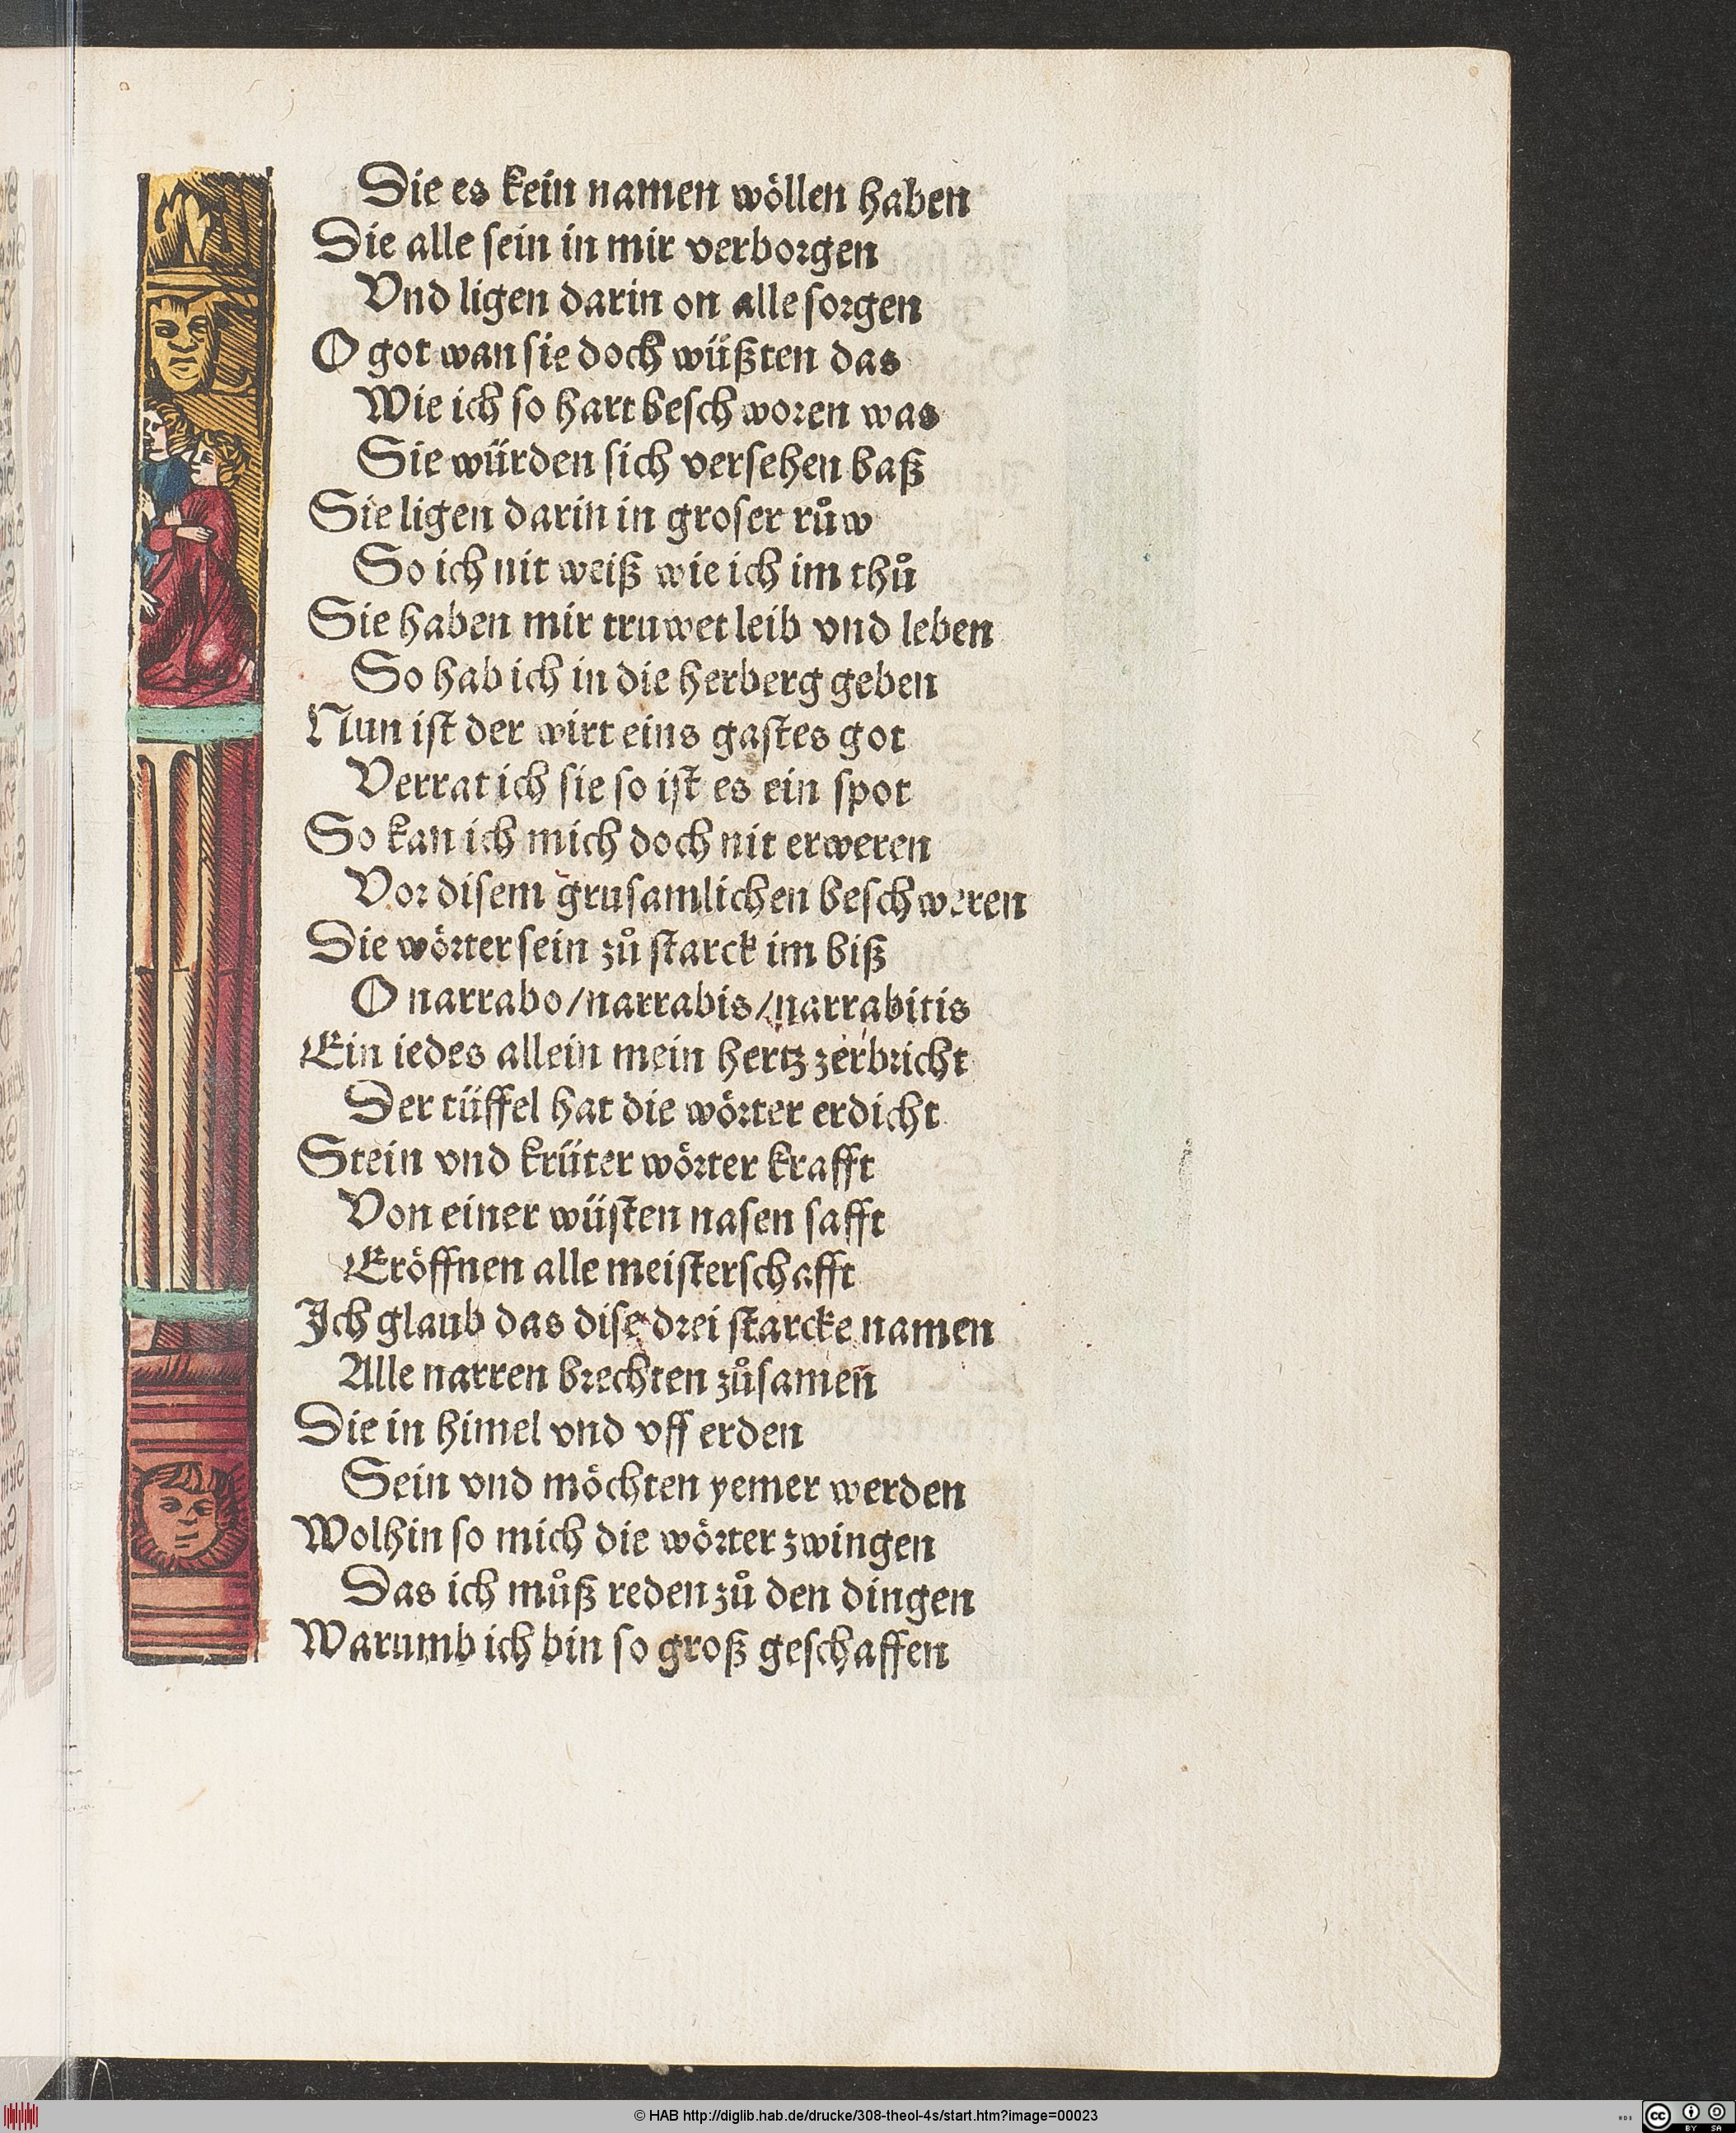 Die es kein namen wöllen haben
Die alle sein in mir verborgen
Vnd ligen darin on alle sorgen
O got wan sie doch wüßten das
Wie ich so hart beschworen was
Sie würden sich versehen baß
Sie ligen darin in groser růw
So ich nit weiß wie ich im thů
Sie haben mir truwet leib vnd leben
So hab ich in die herberg geben
Nun ist der wirt eins gastes got
Verrat ich sie so ist es ein spot
So kan ich mich doch nit erweren
Vor disem grusamlichen beschweren
Die wörter sein zů starck im biß
O narrabo/narrabis/narrabitis
Ein iedes allein mein hertz zerbricht
Der tüffel hat die wörter erdicht
Stein vnd krüter wörter krafft
Von einer wüsten nasen safft
Eröffnen alle meisterschafft
Ich glaub das dise drei starcke namen
Alle narren brechten zůsamen̄
Die in himel vnd vff erden
Sein vnd möchten yemer werden
Wolhin so mich die wörter zwingen
Das ich můß reden zů den dingen
Warumb ich bin so groß geschaffen
© HAB http://diglib.hab.de/drucke/308-theol-4s/start.htm?image=00023
cc BY SA